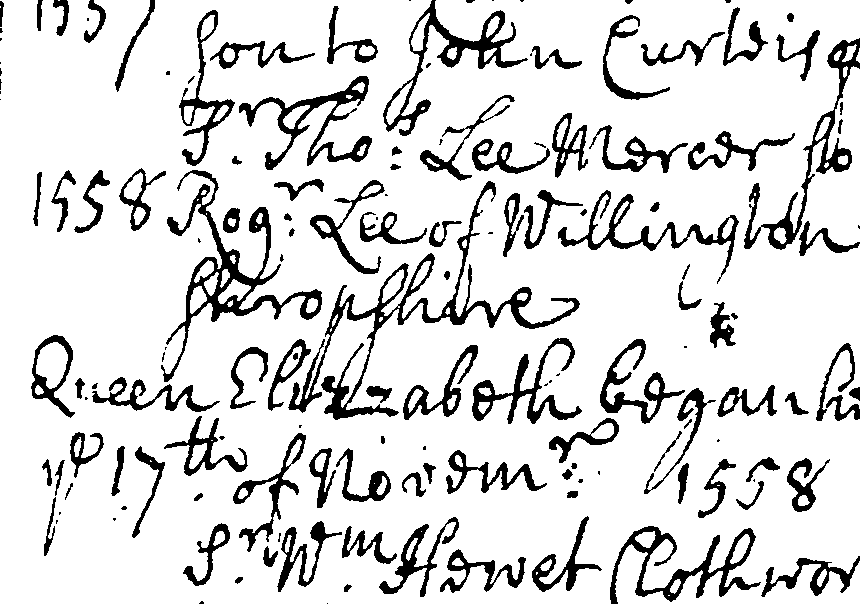 1557 son to John Curteis of
Sr. Thos: Lee Mercer so
1558 Rogr: Lee of Willington
Shropshire
Queen Elizzabeth began hi
ye 17th. of Novemr: 1558
Sr. Wm. Hewet Clothwor